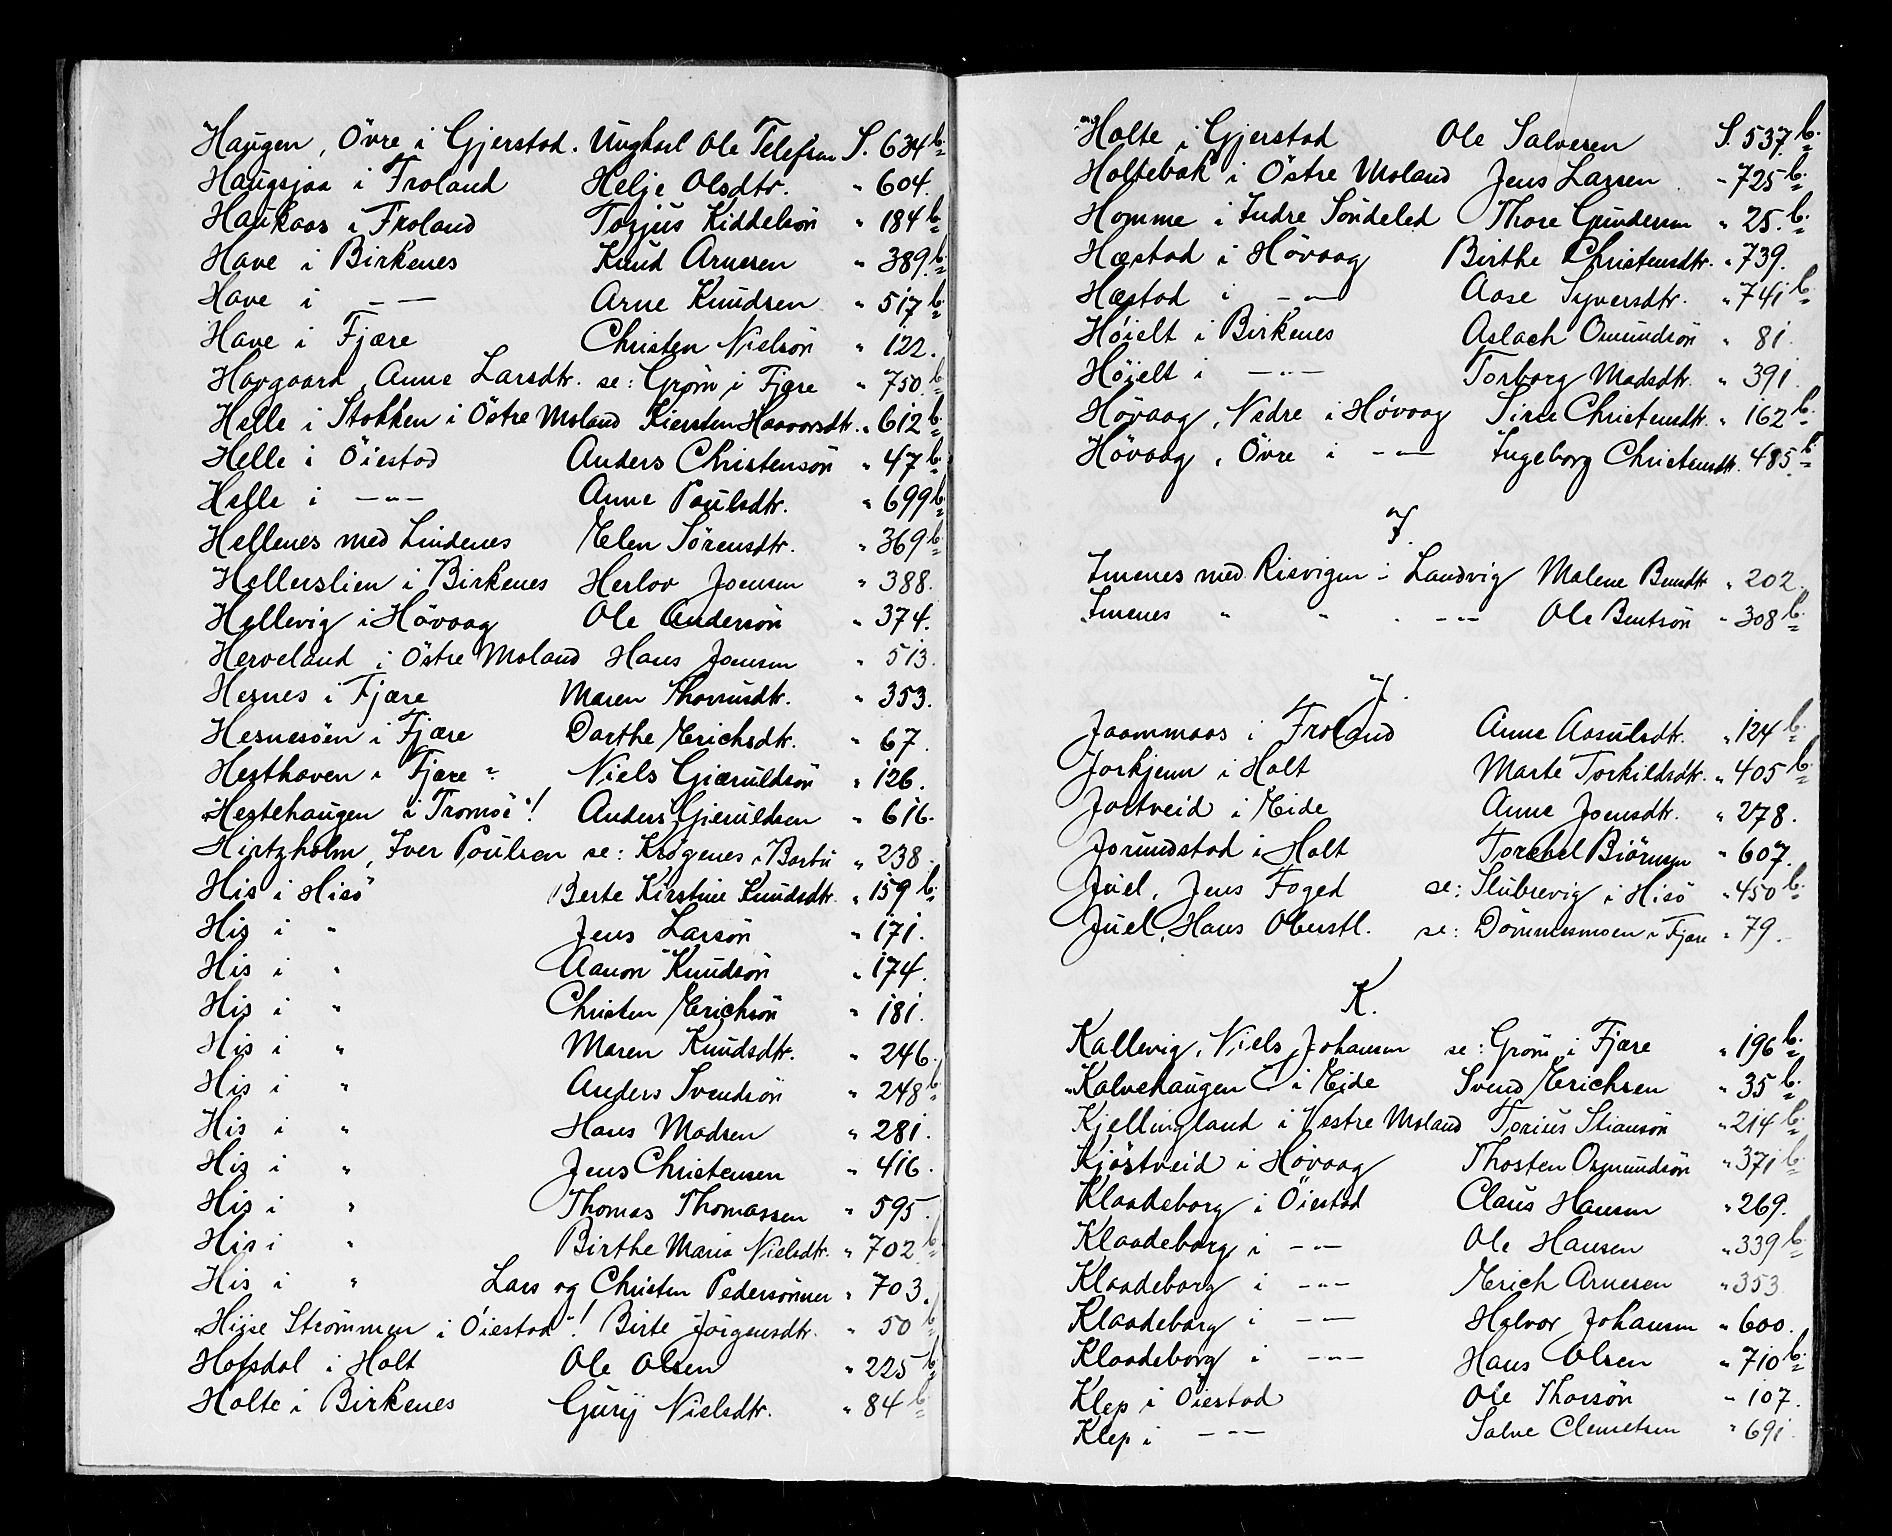 Haugen, Övre i Gjerstad. Ungkarl Ole Telefsen S. 634 b.
Haugsjaa i Froland Helje Olsdtr. " 604.
Haukaas i Froland Torjus Kiddelsön " 184 b.
Have i Birkenes Knud Arnesen " 389. b.
Have i — — Arne Knudsen " 517 b.
Have i Fjære Christen Nielsön " 122.
Havgaard, Anne Larsdtr. se: Gröm i Fjære " 750. b.
Helle i Stokken i Östre Moland Kiersten Haavorsdtr. " 612 b.
Helle i Öiestad Anders Christensön " 47 b.
Helle i —"— Anne Poulsdtr. " 699 b.
Hellenes med Lindenes Elen Sörensdtr. " 369 b.
Hellerslien i Birkenes Herlov Joensen " 388.
Hellevig i Hövaag Ole Andersön " 374.
Herveland i Östre Moland Hans Jonsen " 513.
Hesnes i Fjære Maren Thomasdtr. " 353.
Hesnesöen i Fjære Dorthe Erichsdtr. " 67.
Hesthaven i Fjære Niels Giæruldsön " 126.
"Hestehaugen i Tromöe"! Anders Gieruldsen " 616.
Hirtzholm, Iver Poulsen se: Krøgenes i Barbu " 238.
His i Hisö Berte Kirstine Knudsdtr. " 159 b.
His i " Jens Larsön " 171.
His i " Aanon Knudsön " 174.
His i " Christen Erichsön " 181.
His i " Maren Knudsdtr. " 246.
His i " Anders Svendsön " 248 b.
His i " Hans Madsen " 281.
His i " Jens Christensen " 416.
His i " Thomas Thomassen " 595.
His i " Birthe Maria Nielsdtr. " 702 b.
His i " Lars og Christen Pedersönner " 703.
"Hisse Strömmen i Öiestad"! Birte Jörgensdtr. " 50 b.
Hofsdal i Holt Ole Olsen " 225 b.
Holte i Birkenes Gurij Nielsdtr. " 84 b.
Holte i Gjerstad Ole Salvesen S. 537. b.
Holtebak i Östre Moland Jens Larsen " 725 b.
Homme i Indre Söndeled Thore Gundersen " 25. b.
Hæstad i Hövaag Birthe Christensdtr. " 739.
Hæstad i —"— Aase Syversdtr. " 741 b.
Höielt i Birkenes Aslach Omundsön " 81.
Höielt i —"— Torborg Madsdtr. " 391.
Hövaag, Nedre i Hövaag Sirie Christensdtr. " 162 b.
Hövaag, Övre i —"— Ingeborg Christensdtr. 485. b.
I.
Imenes med Risvigen i Landvig Malene Bendtr " 202.
Imenes " " " —"— Ole Bentsön " 308 b.
J.
Jaammaas i Froland Anne Aasulsdtr. " 124 b.
Jorkjenn i Holt Marte Torkildsdtr. " 405 b.
Jortveid i Eide Anne Joensdtr. " 278.
Jorundstad i Holt Torchel Biörnsen " 607.
Juel, Jens Foged se: Slubrevig i Hisö " 450 b.
Juel, Hans Oberstl. se: Dömmesmoen i Fjære " 79.
K.
Kallevig, Niels Johansen se: Gröm i Fjære " 196 b.
"Kalvehaugen" i Eide Svend Erichsen " 35 b.
Kjellingland i Vestre Moland Torius Stiansön " 214 b.
Kjöstveid i Hövaag Thosten Osmundsön " 371 b.
Klaadeborg i Öiestad Claus Hansen " 269.
Klaadeborg i —"— Ole Hansen " 339 b.
Klaadeborg i —"— Erich Arnesen " 353
Klaadeborg i —"— Halvor Johansen " 600.
Klaadeborg i —"— Hans Olsen " 710 b.
Klep i Öiestad Ole Thorsön " 107.
Klep i —"— Salve Clemetsen " 691.